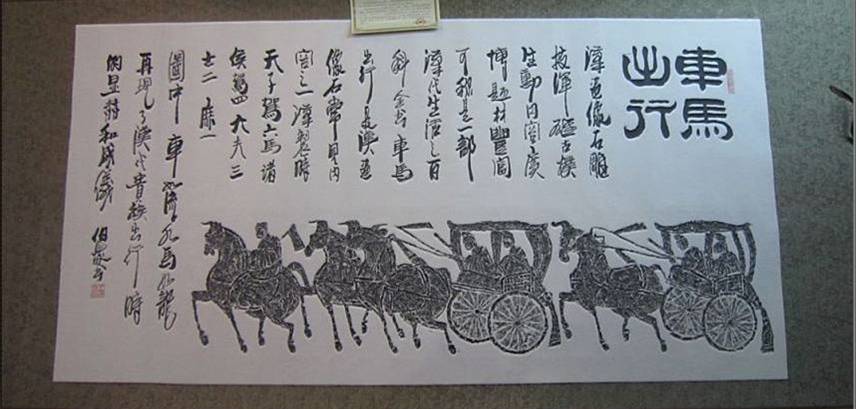 車馬
出行
漢畫像石雕
技渾礴古樸
生動內容廣
博題材豐富
可稱是一部
漢代生活之百
科全書車馬
出行是漢畫
像石常見內
容之一漢製時
天子駕六馬諸
侯駕四大夫三
士二庶一
圖中車馬龍
再現了漢代貴族出行時
的显赫和威儀